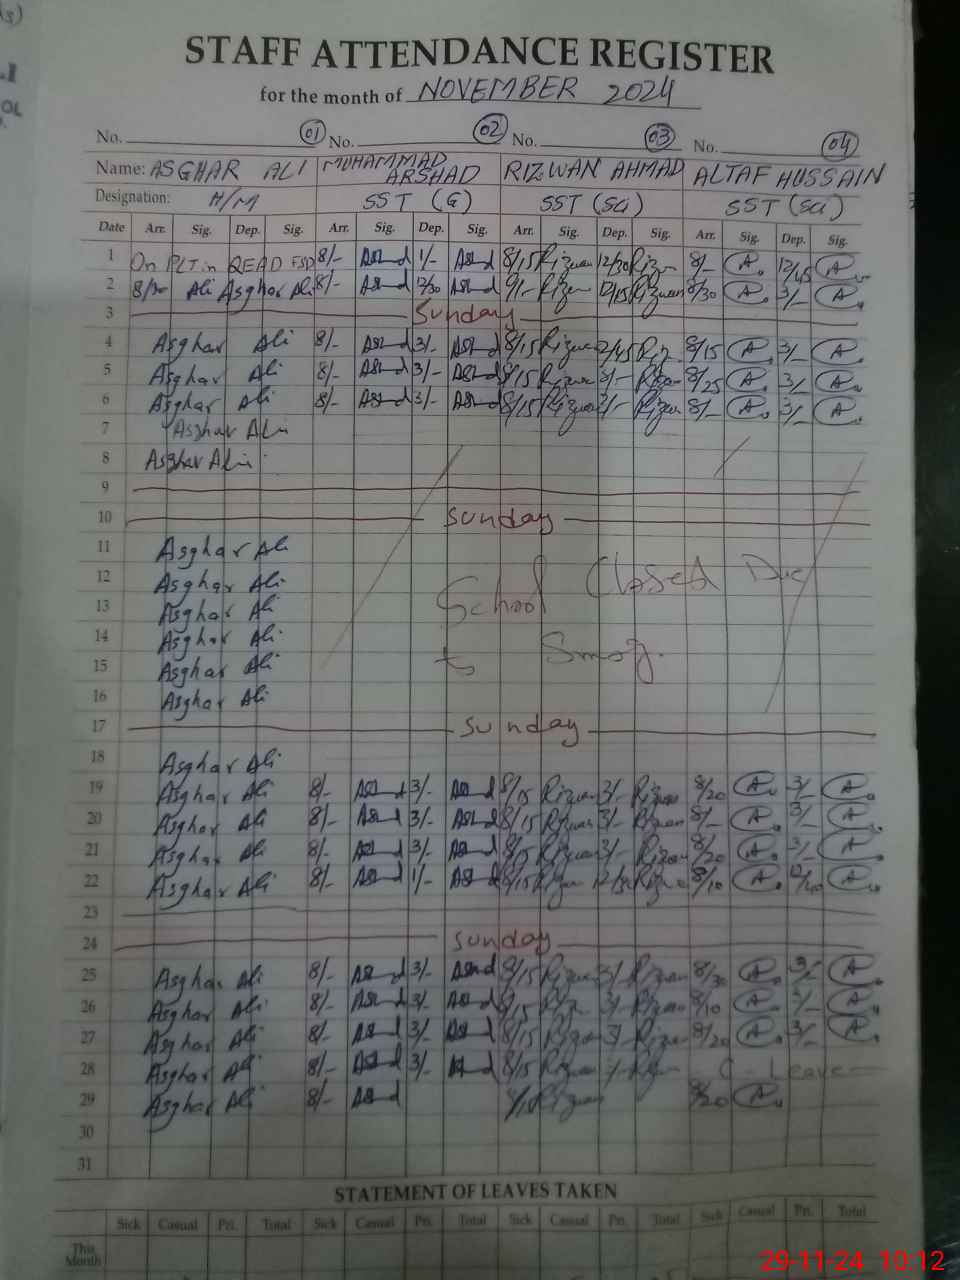 STAFF ATTENDANCE REGISTER
for the month of NOVEMBER 2024
No. 01 No. 02 No. 03 No. 04
Name: ASGHAR ALI MUHAMMAD ARSHAD RIZWAN AHMAD ALTAF HUSSAIN
Designation: H/M SST (G) SST (Sci) SST (Sci)
Date Arr. Sig. Dep. Sig. Arr. Sig. Dep. Sig. Arr. Sig. Dep. Sig. Arr. Sig. Dep. Sig.
1 On PLT in QEAD FSD 8/- 1/- 8/15 Rizwan 12/30 8/- A 12/45 A
2 Ali Asghar Ali 8/- 12/30 9/- 12/15 Rizwan 8/30 A 3/- A
3 Sunday
4 Asghar Ali 8/- 3/- 8/15 Rizwan 2/45 8/15 A 3/- A
5 Asghar Ali 8/- 3/- 8/15 Rizwan 3/- Rizwan 8/25 A 3/- A
6 Asghar Ali 8/- 3/- 8/15 Rizwan 3/- Rizwan 8/- A 3/- A
7 Asghar Ali
8 Asghar Ali
9
10 Sunday
11 Asghar Ali
12 Asghar Ali School Closed Due
13 Asghar Ali
14 Asghar Ali
15 Asghar Ali to Smog.
16 Asghar Ali
17 Sunday
18 Asghar Ali
19 Asghar Ali 8/- 3/- 8/15 Rizwan 3/- Rizwan 8/20 A 3/- A
20 Asghar Ali 8/- 3/- 8/15 Rizwan 3/- Rizwan 8/- A 3/- A
21 Asghar Ali 8/- 3/- 8/15 Rizwan 3/- Rizwan 8/20 A 3/- A
22 Asghar Ali 8/- 1/- 8/15 Rizwan 8/10 A 12/40 A
23
24 Sunday
25 Asghar Ali 8/- 3/- 8/15 Rizwan 3/- Rizwan 8/30 A 3/- A
26 Asghar Ali 8/- 3/- 8/15 3/- Rizwan 8/10 A 3/- A
27 Asghar Ali 8/- 3/- 8/15 Rizwan 3/- Rizwan 8/20 A 3/- A
28 Asghar Ali 8/- 3/- 8/15 Rizwan C-Leave
29 Asghar Ali 8/- Rizwan 8/20 A
30
31
STATEMENT OF LEAVES TAKEN
Sick Casual Pri. Total Sick Casual Pri. Total Sick Casual Pri. Total Sick Casual Pri. Total
This
Month
29-11-24 10:12